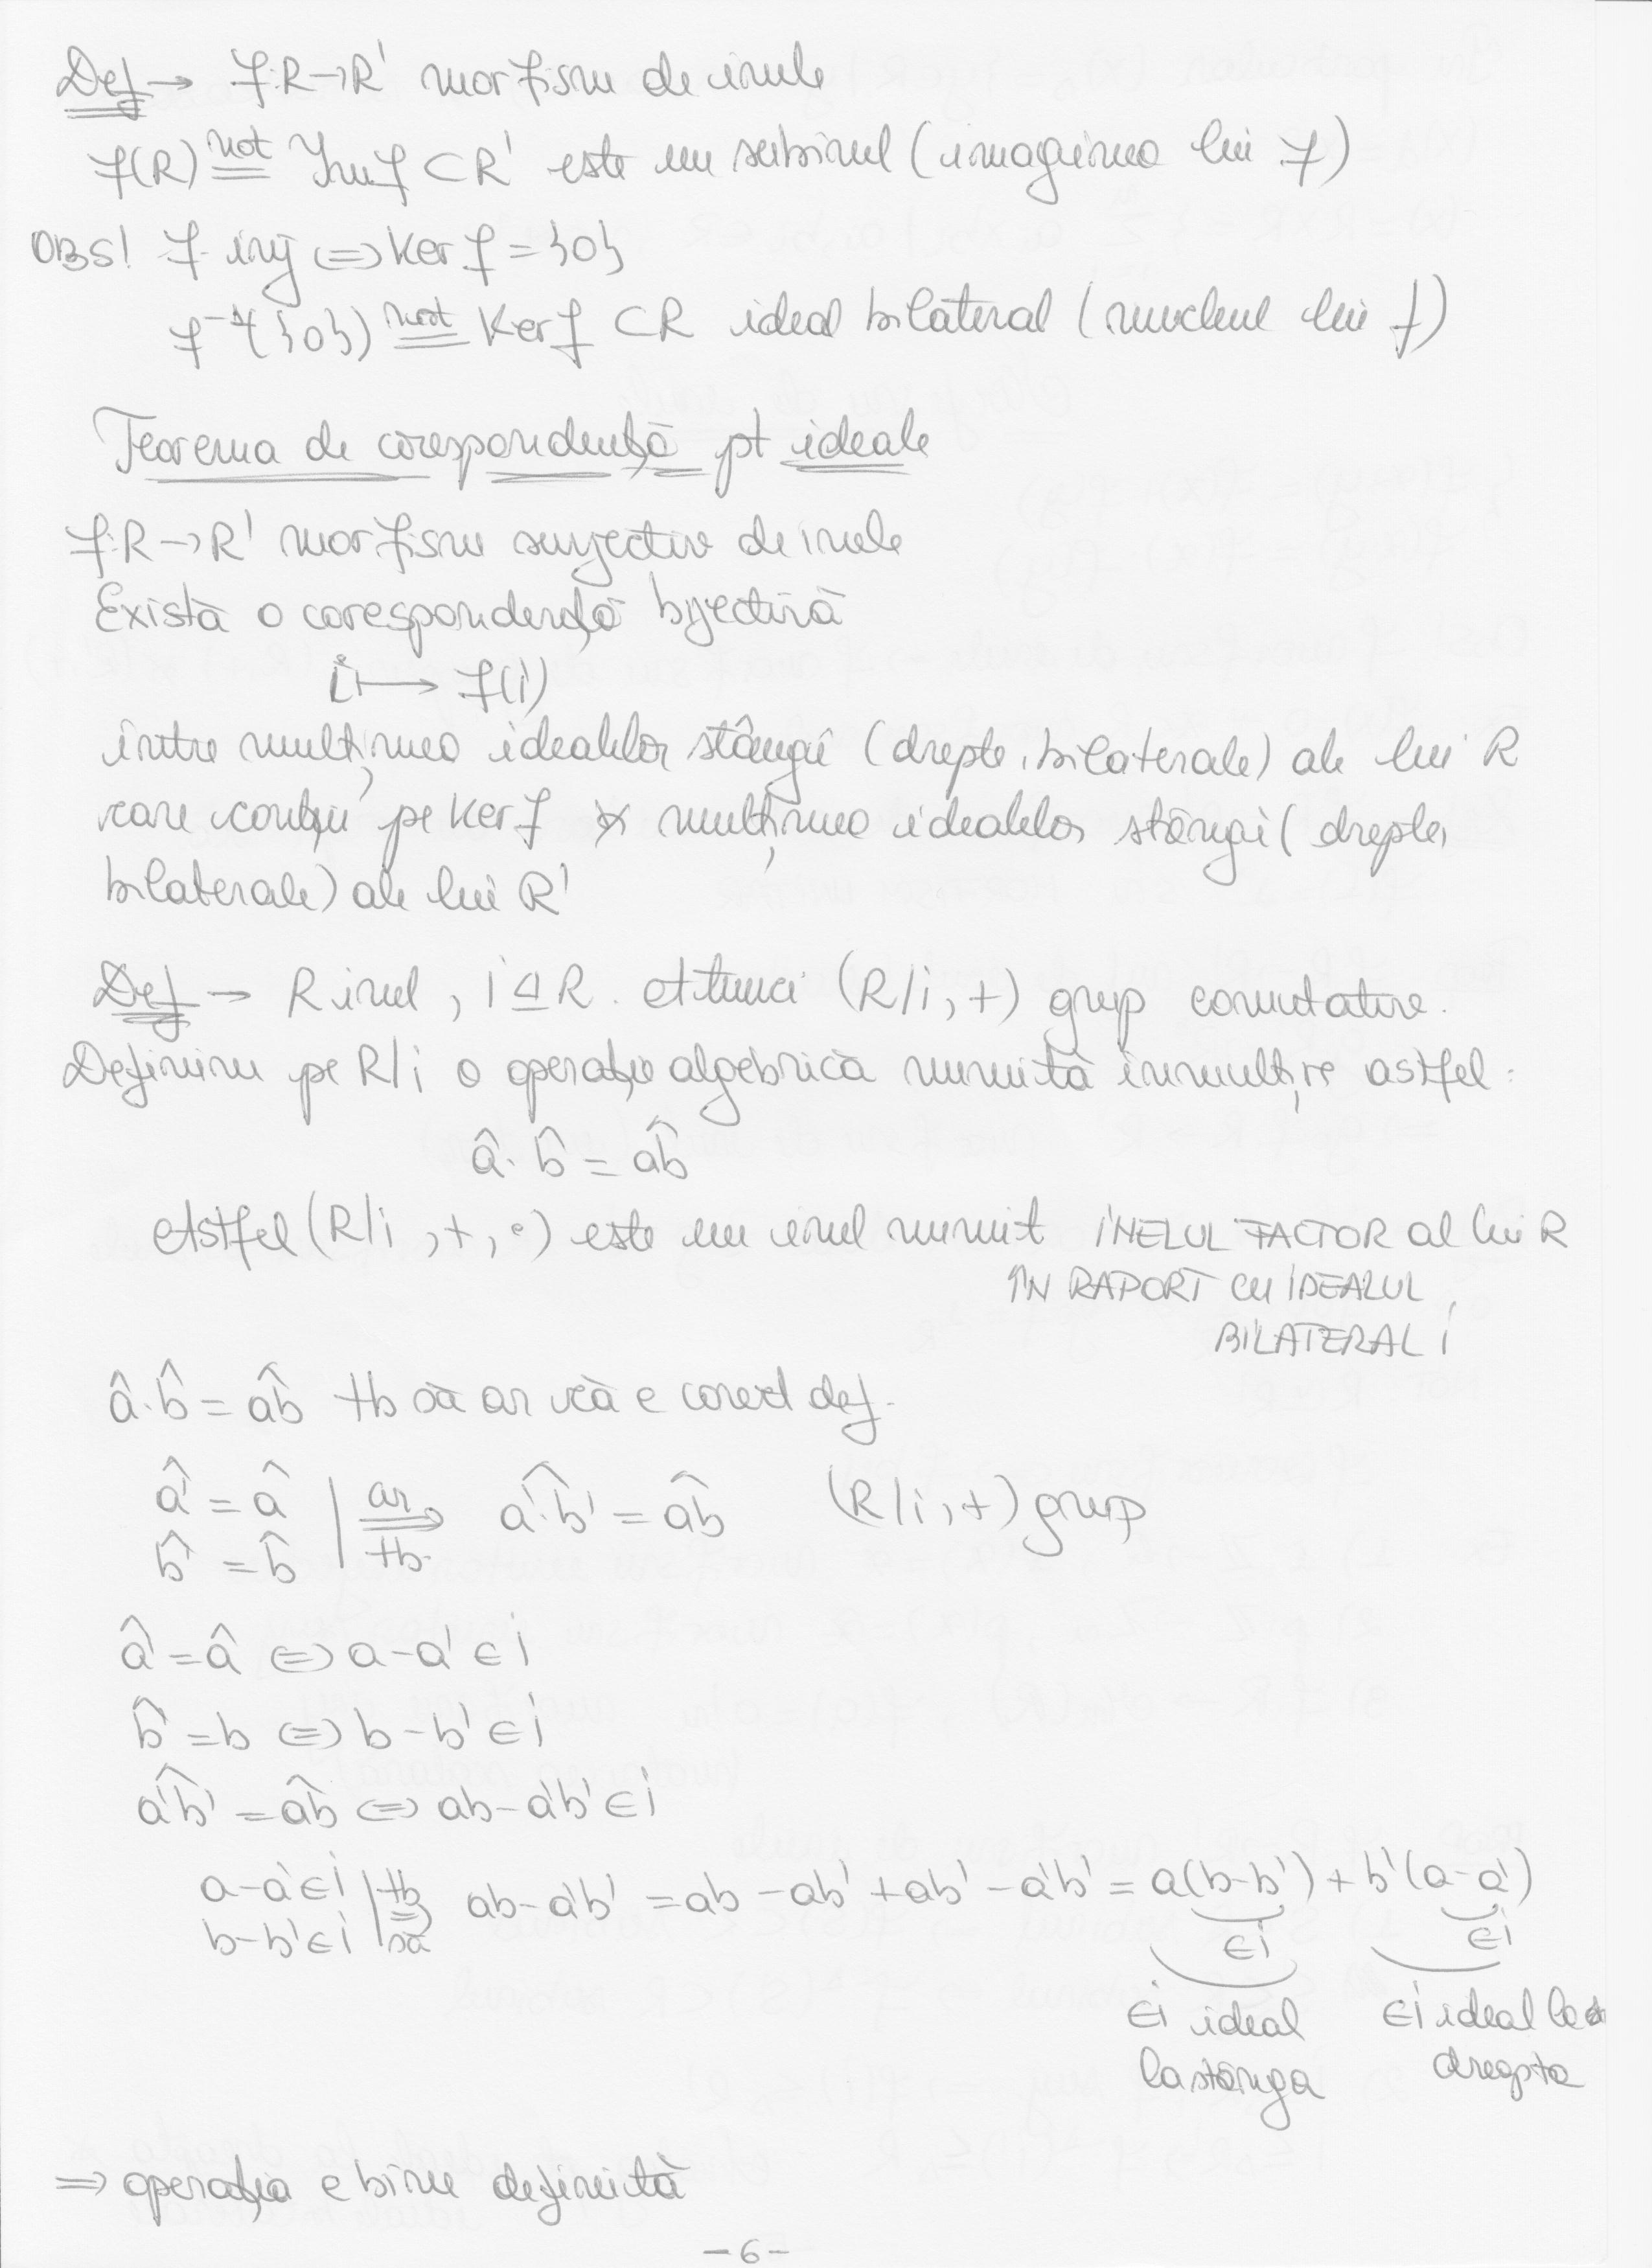 Def → f:R→R' morfism de inele
f(R) not= Imf ⊂ R' este un subinel (imaginea lui f)
OBS! f inj ⇔ Ker f = {0}
f⁻¹({0}) not= Ker f ⊂ R ideal bilateral (nucleul lui f)
Teorema de corespondență pt ideale
f:R→R' morfism surjectiv de inele
Există o corespondență bijectivă
i ↦ f(i)
între mulțimea idealelor stângi (drepte, bilaterale) ale lui R
care conțin pe Ker f și mulțimea idealelor stângi (drepte,
bilaterale) ale lui R'
Def → R inel, i ⊴ R. Atunci (R/i, +) grup comutativ.
Definim pe R/i o operație algebrică numită înmulțire astfel:
â · b̂ = \widehat{ab}
Astfel (R/i, +, ·) este un inel numit INELUL FACTOR al lui R
ÎN RAPORT CU IDEALUL
BILATERAL i
â · b̂ = \widehat{ab} tb să ar că e corect def.
\widehat{a'} = â | ar ⟹ tb. \widehat{a'·b'} = \widehat{ab} (R/i, +) grup
\widehat{b'} = b̂
\widehat{a'} = â ⇔ a-a' ∈ i
\widehat{b'} = b ⇔ b-b' ∈ i
\widehat{a'b'} = \widehat{ab} ⇔ ab-a'b' ∈ i
a-a' ∈ i | tb ⇒ să ab-a'b' = ab-ab'+ab'-a'b' = a(b-b') + b'(a-a')
b-b' ∈ i | ∈i ∈i
∈i ideal ∈i ideal la
la stânga dreapta
⇒ operația e bine definită
-6-